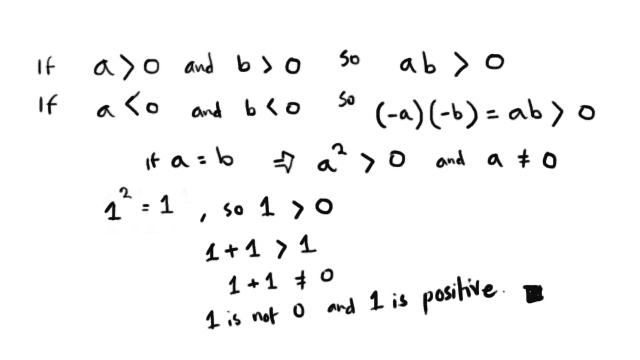 If a > 0 and b > 0 so ab > 0
If a < 0 and b < 0 so (-a)(-b) = ab > 0
if a = b ⇒ a² > 0 and a ≠ 0
1² = 1, so 1 > 0
1 + 1 > 1
1 + 1 ≠ 0
1 is not 0 and 1 is positive. ■